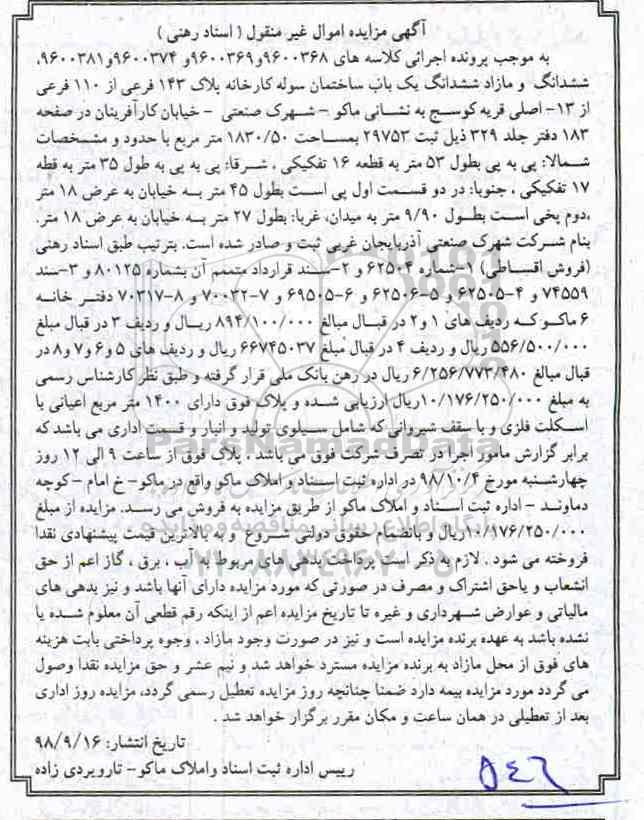 آگهی مزایده اموال غیر منقول ( اسناد رهنی )
به موجب پرونده اجرائی کلاسه های ۹۶۰۰۳۶۸و۹۶۰۰۳۶۹و ۹۶۰۰۳۷۴ و۹۶۰۰۳۸۱،
ششدانگ و مازاد ششدانگ یک باب ساختمان سوله کارخانه پلاک ۱۴۳ فرعی از ۱۱۰ فرعی
از ۱۳- اصلی قریه کوسج به نشانی ماکو - شهرک صنعتی - خیابان کارآفرینان در صفحه
۱۸۳ دفتر جلد ۳۲۹ ذیل ثبت ۲۹۷۵۳ بمساحت ۱۸۳۰/۵۰ متر مربع با حدود و مشخصات
شمالا: پی به پی بطول ۵۳ متر به قطعه ۱۶ تفکیکی ، شرقا: پی به پی به طول ۳۵ متر به قطه
۱۷ تفکیکی ، جنوبا: در دو قسمت اول پی است بطول ۴۵ متر به خیابان به عرض ۱۸ متر
،دوم پخی است بطول ۹/۹۰ متر به میدان، غربا: بطول ۲۷ متر به خیابان به عرض ۱۸ متر.
بنام شرکت شهرک صنعتی آذربایجان غربی ثبت و صادر شده است. بترتیب طبق اسناد رهنی
(فروش اقساطی) ۱-شماره ۶۲۵۰۴ و ۲-سند قرارداد متمم آن بشماره ۸۰۱۲۵ و ۳-سند
۷۴۵۵۹ و ۴-۶۲۵۰۵ و ۵-۶۲۵۰۶ و ۶-۶۹۵۰۵ و ۷-۷۰۰۲۲ و ۸-۷۰۳۱۷ دفتر خانه
۶ ماکو که ردیف های ۱ و۲ در قبال مبالغ ۸۹۴/۱۰۰/۰۰۰ ریال و ردیف ۳ در قبال مبلغ
۵۵۶/۵۰۰/۰۰۰ ریال و ردیف ۴ در قبال مبلغ ۶۶۷۴۵۰۳۷ ریال و ردیف های ۵ و۶ و۷ و۸ در
قبال مبالغ ۶/۲۵۶/۷۷۳/۴۸۰ ریال در رهن بانک ملی قرار گرفته و طبق نظر کارشناس رسمی
به مبلغ ۱۰/۱۷۶/۲۵۰/۰۰۰ریال ارزیابی شده و پلاک فوق دارای ۱۴۰۰ متر مربع اعیانی با
اسکلت فلزی و با سقف شیروانی که شامل سیلوی تولید و انبار و قسمت اداری می باشد که
برابر گزارش مامور اجرا در تصرف شرکت فوق می باشد ، پلاک فوق از ساعت ۹ الی ۱۲ روز
چهارشنبه مورخ ۹۸/۱۰/۴ در اداره ثبت اسناد و املاک ماکو واقع در ماکو- خ امام -کوچه
دماوند - اداره ثبت اسناد و املاک ماکو از طریق مزایده به فروش می رسد. مزایده از مبلغ
۱۰/۱۷۶/۲۵۰/۰۰۰ریال و بانضمام حقوق دولتی شروع و به بالاترین قیمت پیشنهادی نقدا
فروخته می شود . لازم به ذکر است پرداخت بدهی های مربوط به آب ، برق ، گاز اعم از حق
انشعاب و یاحق اشتراک و مصرف در صورتی که مورد مزایده دارای آنها باشد و نیز بدهی های
مالیاتی و عوارض شهرداری و غیره تا تاریخ مزایده اعم از اینکه رقم قطعی آن معلوم شده یا
نشده باشد به عهده برنده مزایده است و نیز در صورت وجود مازاد ، وجوه پرداختی بابت هزینه
های فوق از محل مازاد به برنده مزایده مسترد خواهد شد و نیم عشر و حق مزایده نقدا وصول
می گردد مورد مزایده بیمه دارد ضمنا چنانچه روز مزایده تعطیل رسمی گردد، مزایده روز اداری
بعد از تعطیلی در همان ساعت و مکان مقرر برگزار خواهد شد .
تاریخ انتشار: ۹۸/۹/۱۶
رییس اداره ثبت اسناد واملاک ماکو- تارویردی زاده
۵۴۶
ParsNamadData
پایگاه اطلاع رسانی مناقصه و مزایده
۰۲۱-۸۸۳۴۹۶۷۰-۵